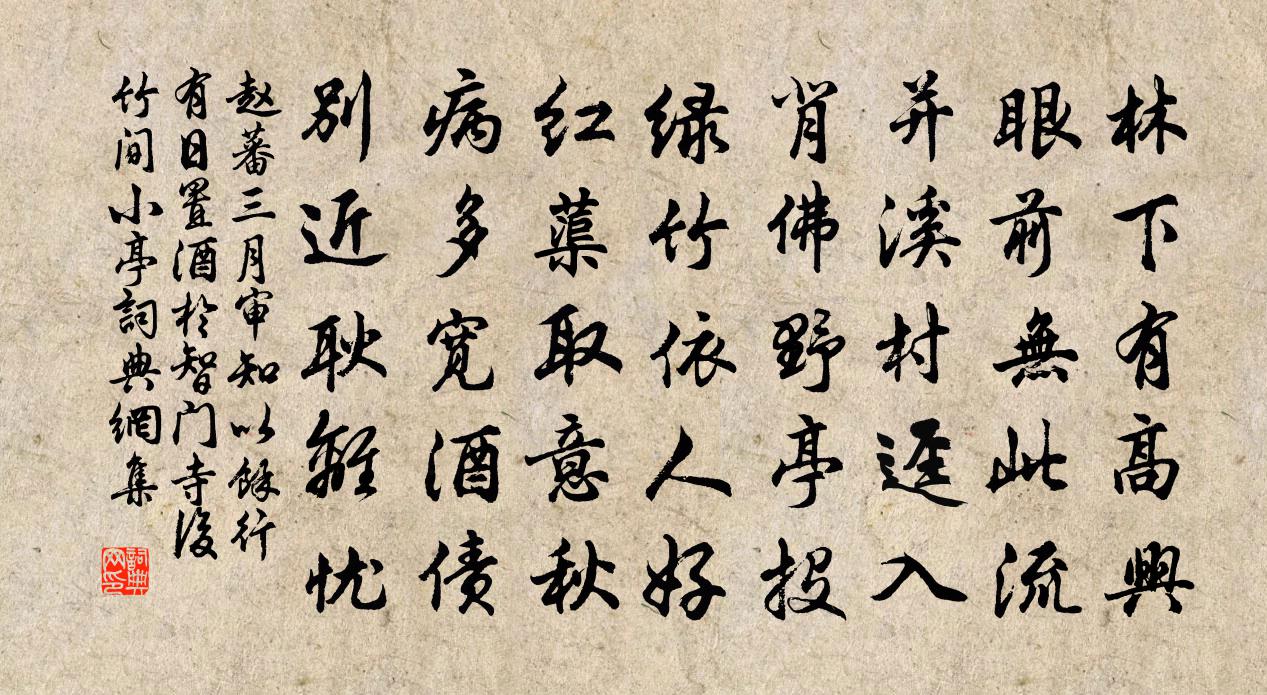 林下有高興
眼前無此流
并溪村遥入
背佛野亭投
绿竹依人好
红蕖取意秋
病多宽酒债
别近耿離忧
赵蕃三月审知以餘行
有日置酒於智门寺後
竹间小亭詞典網集
詞典网印